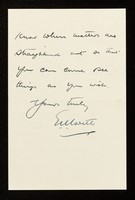 Know where matters are
straightened out so that
you can come see
things as you wish
Yours truly